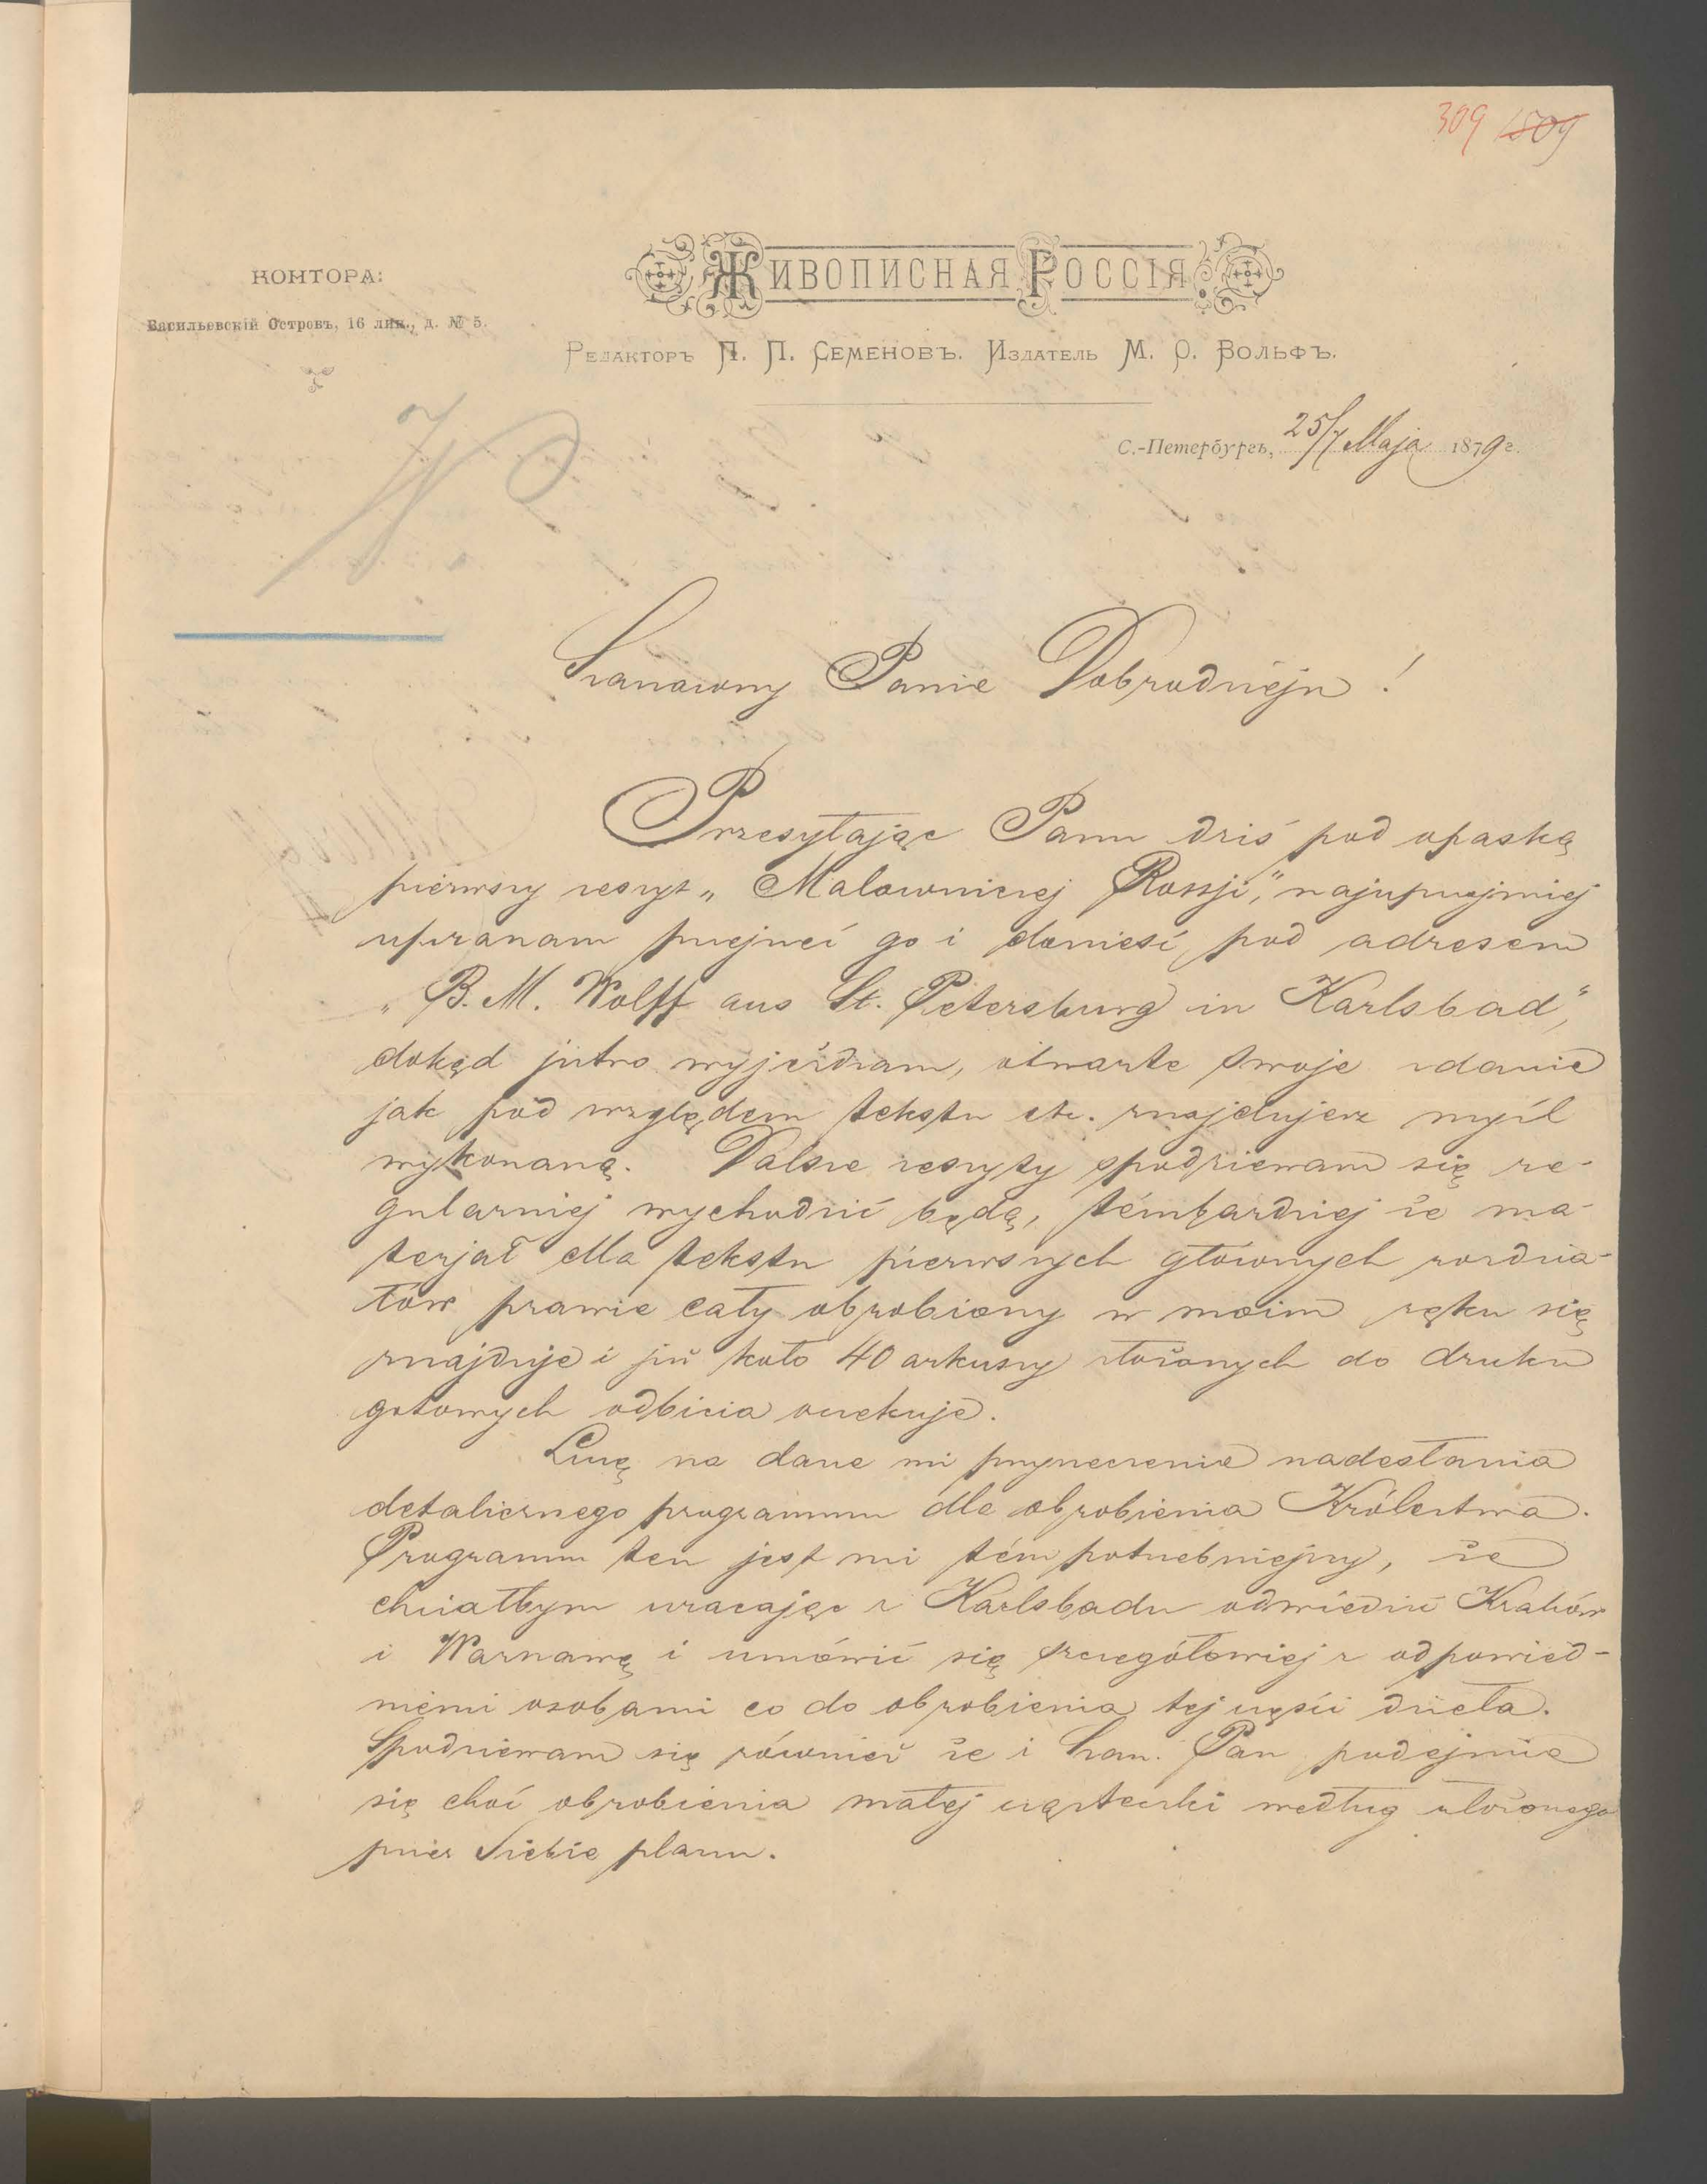 309 1509
КОНТОРА:
Васильевскій Островъ, 16 лин., д. № 5.
ЖИВОПИСНАЯ РОССІЯ
Редакторъ П. П. Семеновъ. Издатель М. О. Вольфъ.
С.-Петербургъ, 25/7 Maja 1879 г.
Szanowny Panie Dobrodzieju!
Przesyłając Panu dziś pod opaską
pierwszy zeszyt „Malowniczej Rossji", najuprzejmiej
upraszam przejrzeć go i donieść pod adresem
„B. M. Wolff aus St. Petersburg in Karlsbad",
dokąd jutro wyjeżdżam, otwarte swoje zdanie
jak pod względem tekstu etc. znajdujesz myśl
wykonaną. Dalsze zeszyty spodziewam się re-
gularniej wychodzić będą, témbardziej że ma-
terjał dla tekstu pierwszych głównych rozdzia-
łów prawie cały obrobiony w moim ręku się
znajduje i już koło 40 arkuszy złożonych do druku
gotowych odbicia oczekuje.
Liczę na dane mi przyrzeczenie nadesłania
detalicznego programmu dla obrobienia Królestwa.
Programm ten jest mi tém potrzebniejszy, że
chciałbym wracając z Karlsbadu odwiedzić Kraków
i Warszawę i umówić się szczegółowiej z odpowied-
niemi osobami co do obrobienia tej części dzieła.
Spodziewam się również że i Szan. Pan podejmie
się choć obrobienia małej cząsteczki według złożonego
przez Siebie planu.